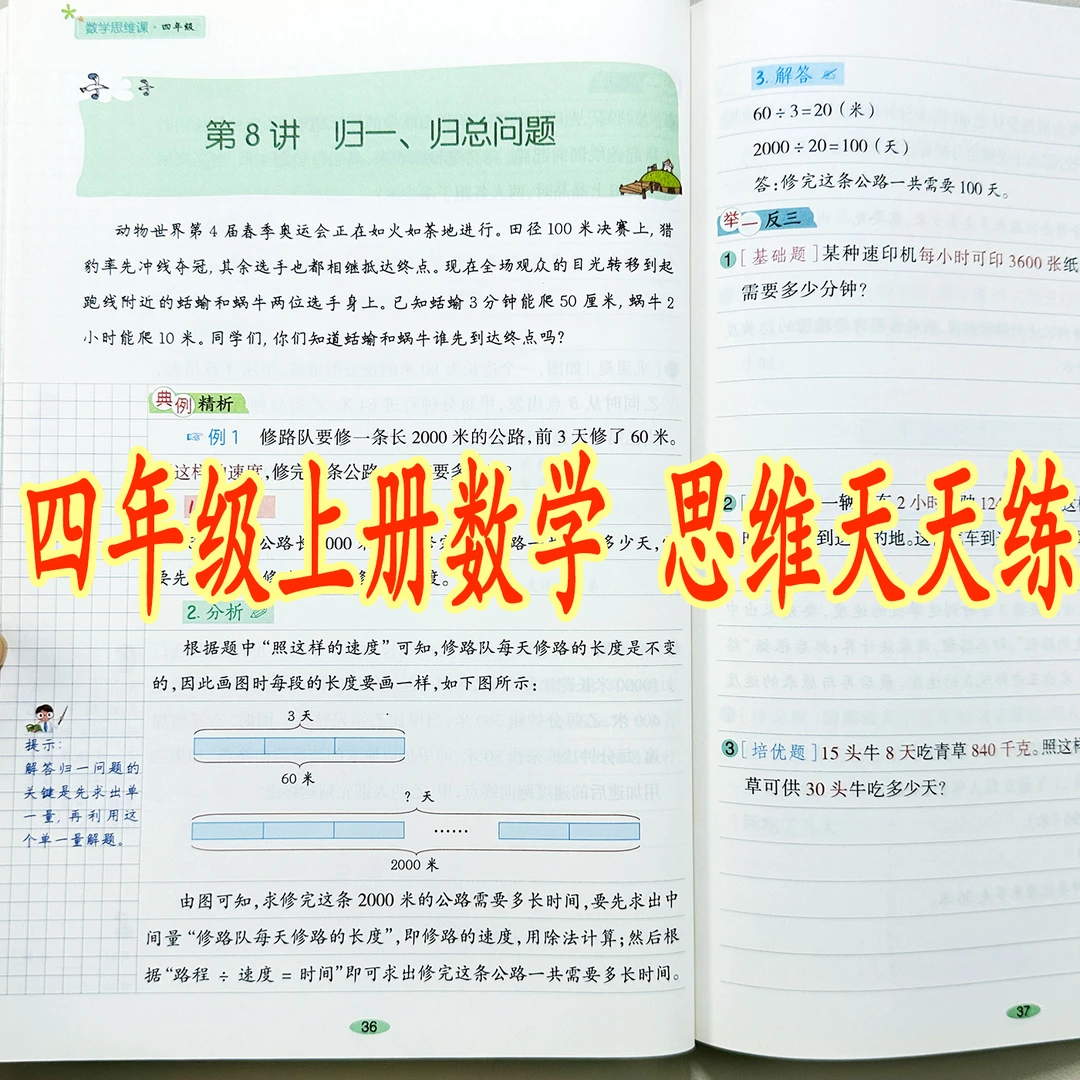 数学思维课·四年级
第8讲 归一、归总问题
动物世界第4届春季奥运会正在如火如荼地进行。田径100米决赛上,猎
豹率先冲线夺冠,其余选手也都相继抵达终点。现在全场观众的目光转移到起
跑线附近的蛞蝓和蜗牛两位选手身上。已知蛞蝓3分钟能爬50厘米,蜗牛2
小时能爬10米。同学们,你们知道蛞蝓和蜗牛谁先到达终点吗?
典例精析
例1 修路队要修一条长2000米的公路,前3天修了60米。
这样的速度,修完
四年级上册数学 思维天天练
2. 分析
根据题中“照这样的速度”可知,修路队每天修路的长度是不变
的,因此画图时每段的长度要画一样,如下图所示:
3天
60米
? 天
……
2000米
提示:
解答归一问题的
关键是先求出单
一量,再利用这
个单一量解题。
由图可知,求修完这条2000米的公路需要多长时间,要先求出中
间量“修路队每天修路的长度”,即修路的速度,用除法计算;然后根
据“路程 ÷ 速度 = 时间”即可求出修完这条公路一共需要多长时间。
36
3. 解答
60÷3=20(米)
2000÷20=100(天)
答:修完这条公路一共需要100天。
举一反三
1 [基础题]某种速印机每小时可印3600张纸
需要多少分钟?
2
3 [培优题]15头牛8天吃青草840千克。照这样
草可供30头牛吃多少天?
37